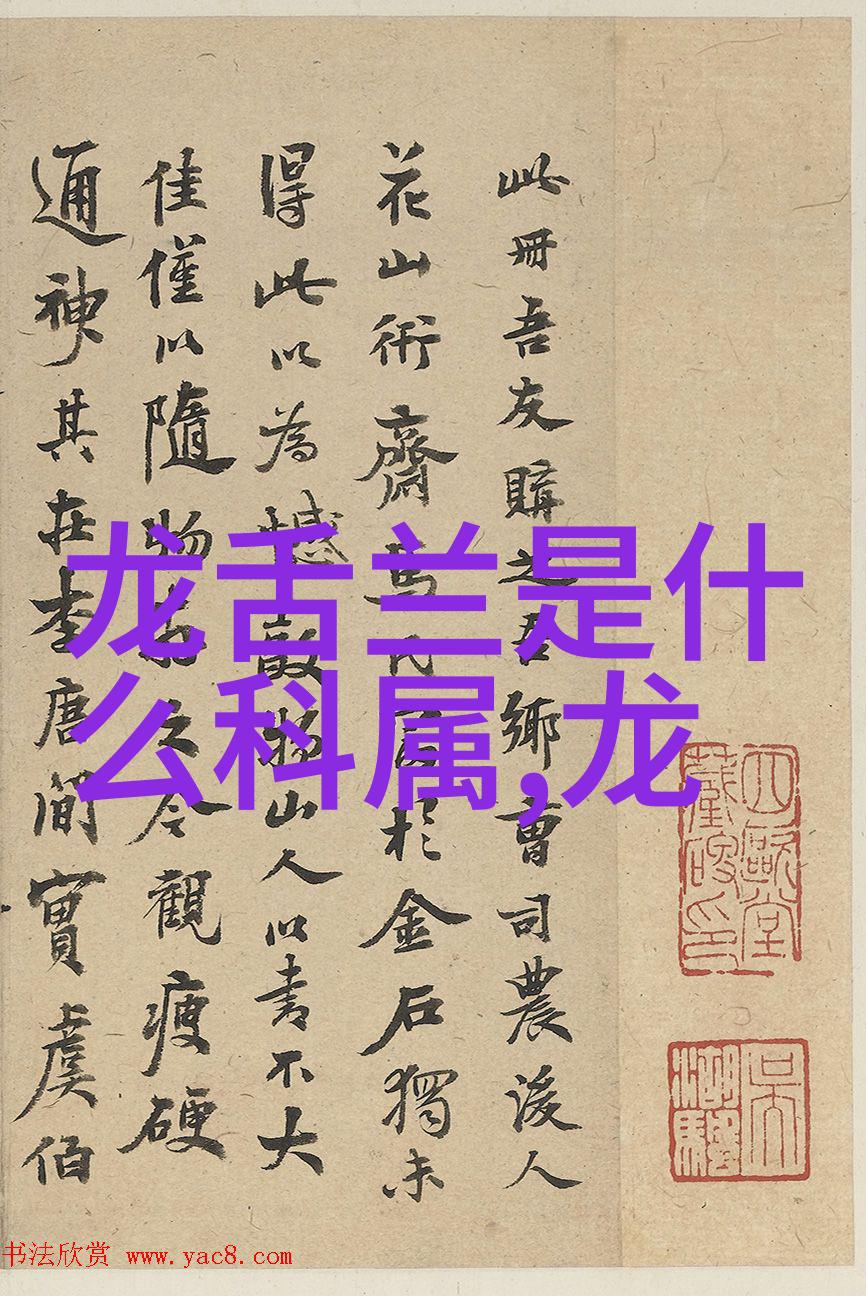 此冊吾友購之吾鄉曹司農後人
花山術齋馬氏 於金石獨未
得此以為憾 物山人以書不大
佳僅以隨物 之今觀瘦硬
通神其在李唐開實虞伯
龙舌兰是什
么科属,龙
书法欣赏 www.yac8.com